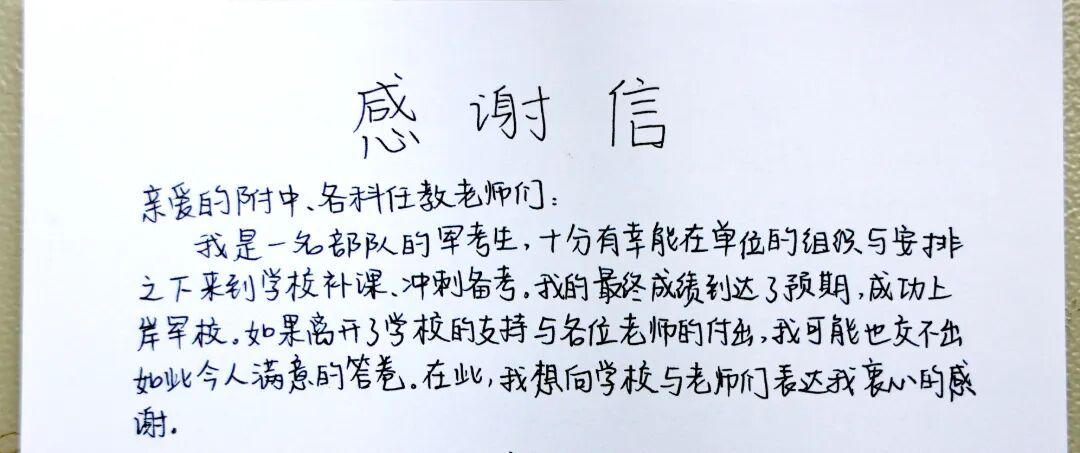 感谢信
亲爱的附中、各科任教老师们：
我是一名部队的军考生，十分有幸能在单位的组织与安排
之下来到学校补课、冲刺备考。我的最终成绩到达了预期，成功上
岸军校。如果离开了学校的支持与各位老师的付出，我可能也交不出
如此令人满意的答卷。在此，我想向学校与老师们表达我衷心的感
谢.